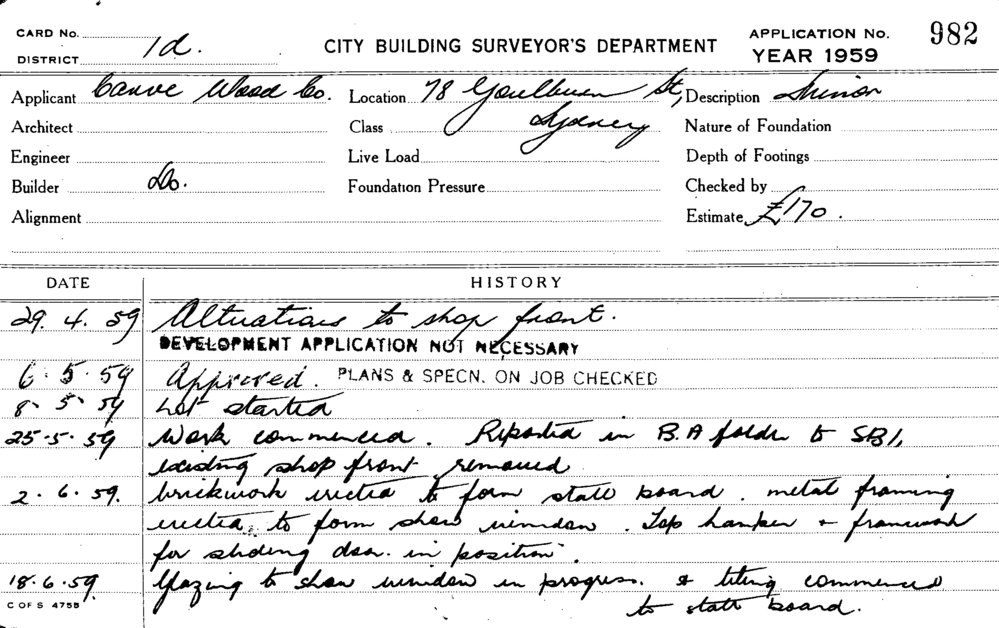 CARD No. CITY BUILDING SURVEYOR'S DEPARTMENT APPLICATION No. 982
DISTRICT 1d. YEAR 1959
Applicant Carve Wood Co. Location 78 Goulburn St, Description Minor
Architect Class Sydney Nature of Foundation
Engineer Live Load Depth of Footings
Builder Do. Foundation Pressure Checked by
Alignment Estimate £170.
DATE HISTORY
29. 4. 59 Alterations to shop front.
DEVELOPMENT APPLICATION NOT NECESSARY
6. 5. 59 Approved. PLANS & SPECN. ON JOB CHECKED
8. 5. 59 Not started
25. 5. 59 Work commenced. Reported in B.A folder to SBI,
existing shop front removed
2. 6. 59. brickwork erected to form stall board. metal framing
erected to form show window. Top hanger + framework
for sliding door in position.
18. 6. 59. Glazing to show window in progress. & tiling commenced
C OF S 4755 to stall board.